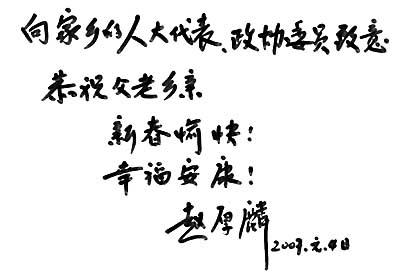 向家乡的人大代表、政协委员致意
恭祝父老乡亲
新春愉快!
幸福安康!
赵厚麟
2009.元.4日